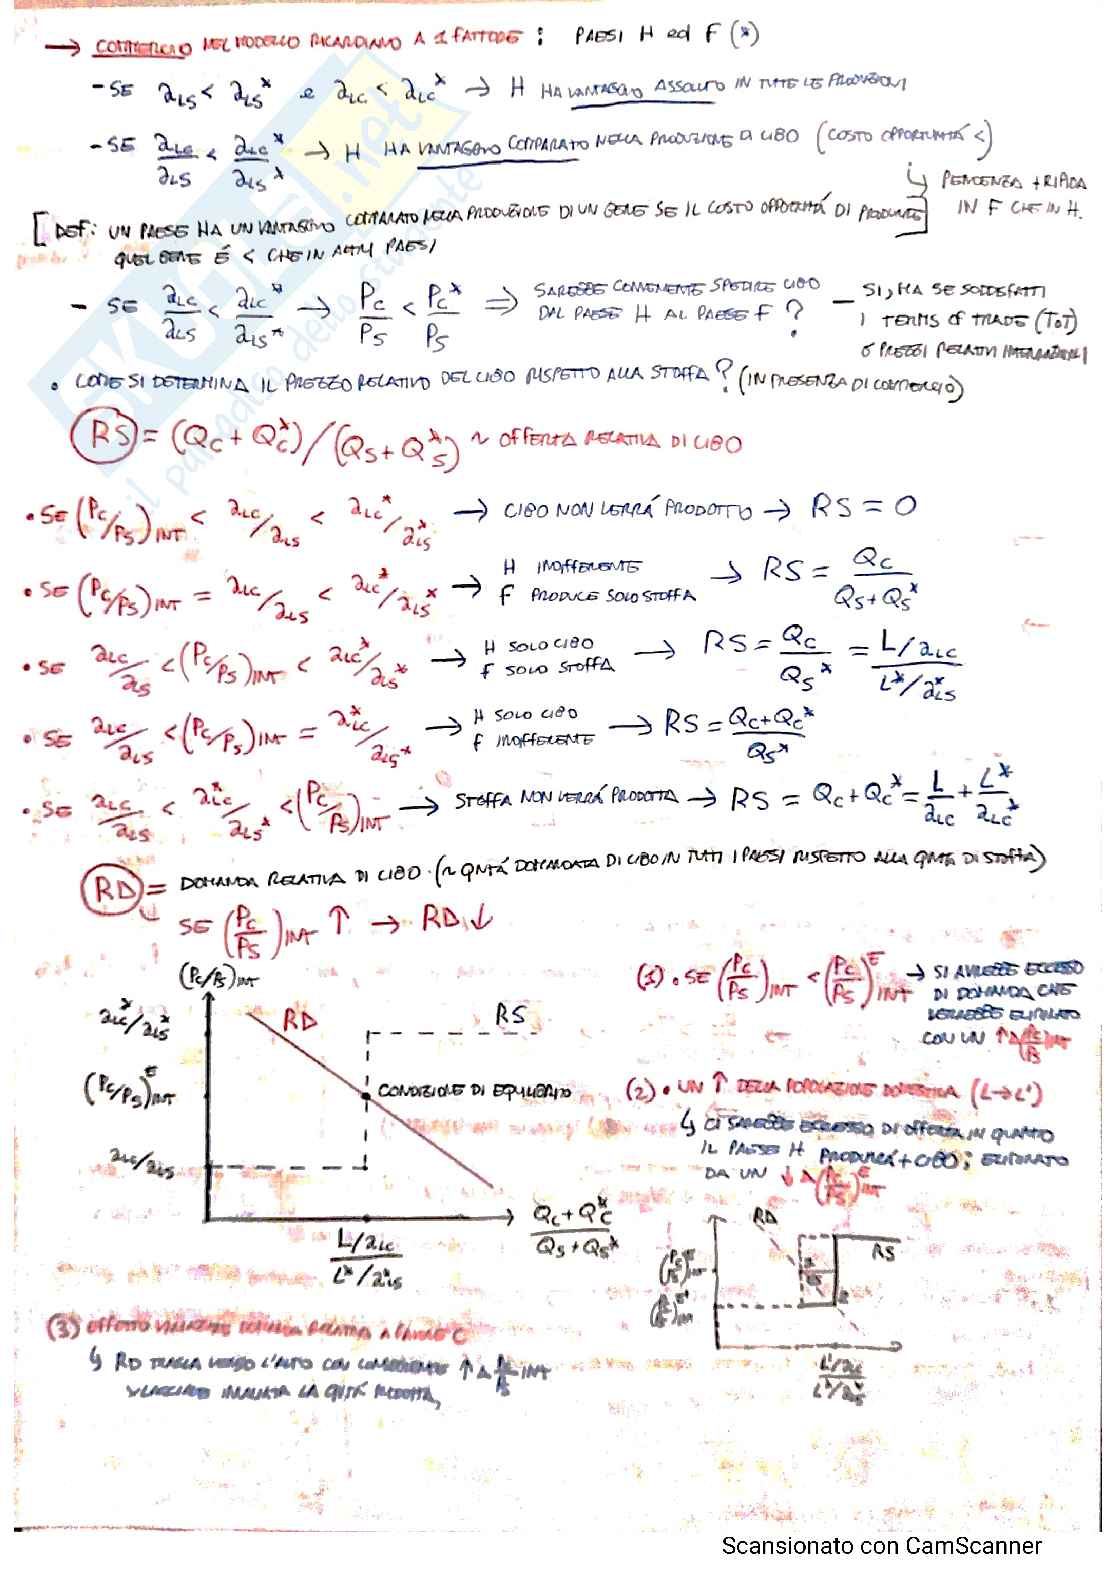 → COMMERCIO NEL MODELLO RICARDIANO A 1 FATTORE : PAESI H ed F (*)
- SE aLS < aLS* e aLC < aLC* → H HA VANTAGGIO ASSOLUTO IN TUTTE LE PRODUZIONI
- SE aLC/aLS < aLC*/aLS* → H HA VANTAGGIO COMPARATO NELLA PRODUZIONE DI CIBO (COSTO OPPORTUNITÁ <)
↳ PENDENZA + RIPIDA
IN F CHE IN H.
[DEF: UN PAESE HA UN VANTAGGIO COMPARATO NELLA PRODUZIONE DI UN BENE SE IL COSTO OPPORTUNITÁ DI PRODURRE]
QUEL BENE É < CHE IN ALTRI PAESI
- SE aLC/aLS < aLC*/aLS* → PC/PS < PC*/PS ⇒ SAREBBE CONVENIENTE SPEDIRE CIBO
DAL PAESE H AL PAESE F ?
— SI, MA SE SODDISFATTI
I TERMS OF TRADE (TOT)
O PREZZI RELATIVI INTERNAZIONALI
• COME SI DETERMINA IL PREZZO RELATIVO DEL CIBO RISPETTO ALLA STOFFA ? (IN PRESENZA DI COMMERCIO)
RS = (QC + QC*)/(QS + QS*) ~ OFFERTA RELATIVA DI CIBO
• SE (PC/PS)INT < aLC/aLS < aLC*/aLS* → CIBO NON VERRÁ PRODOTTO → RS = 0
• SE (PC/PS)INT = aLC/aLS < aLC*/aLS* → H INDIFFERENTE
F PRODUCE SOLO STOFFA → RS = QC/(QS + QS*)
• SE aLC/aLS < (PC/PS)INT < aLC*/aLS* → H SOLO CIBO
F SOLO STOFFA → RS = QC/QS* = (L/aLC)/(L*/aLS*)
• SE aLC/aLS < (PC/PS)INT = aLC*/aLS* → H SOLO CIBO
F INDIFFERENTE → RS = (QC + QC*)/QS*
• SE aLC/aLS < aLC*/aLS* < (PC/PS)INT → STOFFA NON VERRÁ PRODOTTA → RS = QC + QC* = L/aLC + L*/aLC*
RD = DOMANDA RELATIVA DI CIBO. (~ QNTÁ DOMANDATA DI CIBO IN TUTTI I PAESI RISPETTO ALLA QNTÁ DI STOFFA)
↳ SE (PC/PS)INT ↑ → RD ↓
(PC/PS)INT
aLC*/aLS*
RD
RS
(PC/PS)E INT
CONDIZIONE DI EQUILIBRIO
aLC/aLS
(QC + QC*)/(QS + QS*)
(L/aLC)/(L*/aLS*)
(1) • SE (PC/PS)INT < (PC/PS)E INT → SI AVREBBE ECCESSO
DI DOMANDA CHE
VERREBBE ELIMINATO
CON UN ↑ Δ(PC/PS)INT
(2) • UN ↑ DELLA POPOLAZIONE DOMESTICA (L→L')
↳ CI SAREBBE ECCESSO DI OFFERTA IN QUANTO
IL PAESE H PRODURRÁ + CIBO; ELIMINATO
DA UN ↓ Δ(PC/PS)E INT
RD
RS
(PC/PS)E INT
(PC/PS)E' INT
(L'/aLC)/(L*/aLS*)
(3) EFFETTO DOMANDA RELATIVA A C
↳ RD TRASLA VERSO L'ALTO CON CONSEGUENTE ↑ Δ PC/PS INT
LASCIANDO INVARIATA LA QNTÁ PRODOTTA
SKUOLA.net
il paradiso dello studente
Scansionato con CamScanner